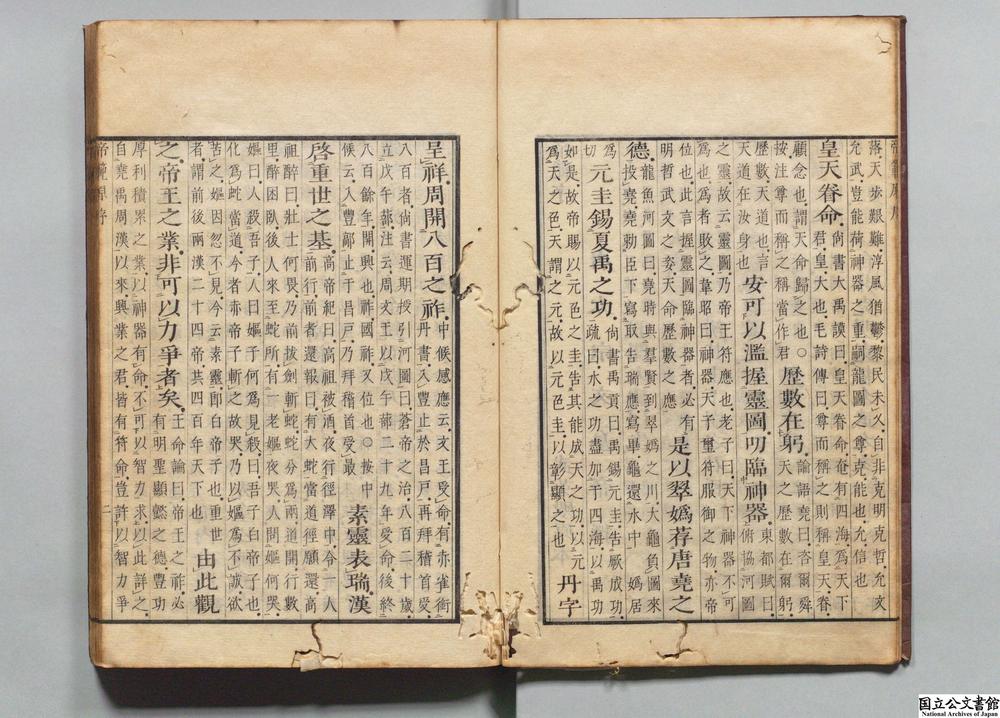 蕩天步艱難淳風猶鬱黎民未乂自非克明克哲允文
允武豈能荷神器之重嗣龍圖之尊克能也允信也
皇天眷命尚書大禹謨曰皇天眷命奄有四海爲天下
君皇大也毛詩傳曰尊而稱之則稱皇天眷
顧念也謂天命歸之也○歷數在躬論語堯曰咨爾舜
按注尊而稱之稱當作君天之歷數在爾躬
歷數天道也言天道在汝身也安可以濫握靈圖叨臨神器東都賦曰
俯協河圖
之靈故云靈圖乃帝王符應也老子曰天下神器不可
爲也爲者敗之韋昭曰神器天子璽符服御之物亦帝
位也此言握靈圖臨神器者必有
明哲武文之姿天命歷數之應是以翠嬀荐唐堯之
德龍魚河圖曰堯時與羣賢到翠嬀之川大龜負圖來
投堯堯勅臣下寫取告瑞應寫畢龜還水中嬀居
爲切元圭錫夏禹之功尚書禹貢曰禹錫元圭告厥成功
疏曰水之功盡加于四海以禹功
如是故帝賜以元色之圭告其能成天之功以元
爲天之色天謂之元故以元色圭以彰顯之也丹字
呈祥周開八百之祚中候感應云文王受命有赤雀銜
丹書入豐止於昌戸再拜稽首受
八百者尚書運期授引河圖曰蒼帝之治八百二十歲
立戊午蔀注云周文王以戊午蔀二十九年受命後終
八百餘年開興也祚國祚又位也○按中
候云入豐鄗止于昌戸乃拜稽首受最素靈表瑞漢
啓重世之基高帝紀曰高祖被酒夜行徑澤中令一人
前行前者還報曰有大蛇當道徑願還高
祖醉曰壯士行何畏乃前拔劍斬蛇蛇分爲兩道開行數
里醉困臥後人來至蛇所有一老嫗夜哭人問嫗何哭
嫗曰人殺吾子人曰嫗子何爲見殺曰吾子白帝子也
化爲蛇當道今者赤帝子斬之故哭乃以嫗爲不誠欲
苦之嫗因忽不見今云素靈即白帝子也重世
者謂前後兩漢二十四帝其四百年天下也由此觀
之帝王之業非可以力爭者矣王命論曰帝王之祚必
有明聖顯懿之德豊功
厚利積累之業以神器有命不可以智力求以此詳之
自堯禹周漢以來興業之君皆有符命豈許以智力爭
帝範原序
二
国立公文書館
National Archives of Japan